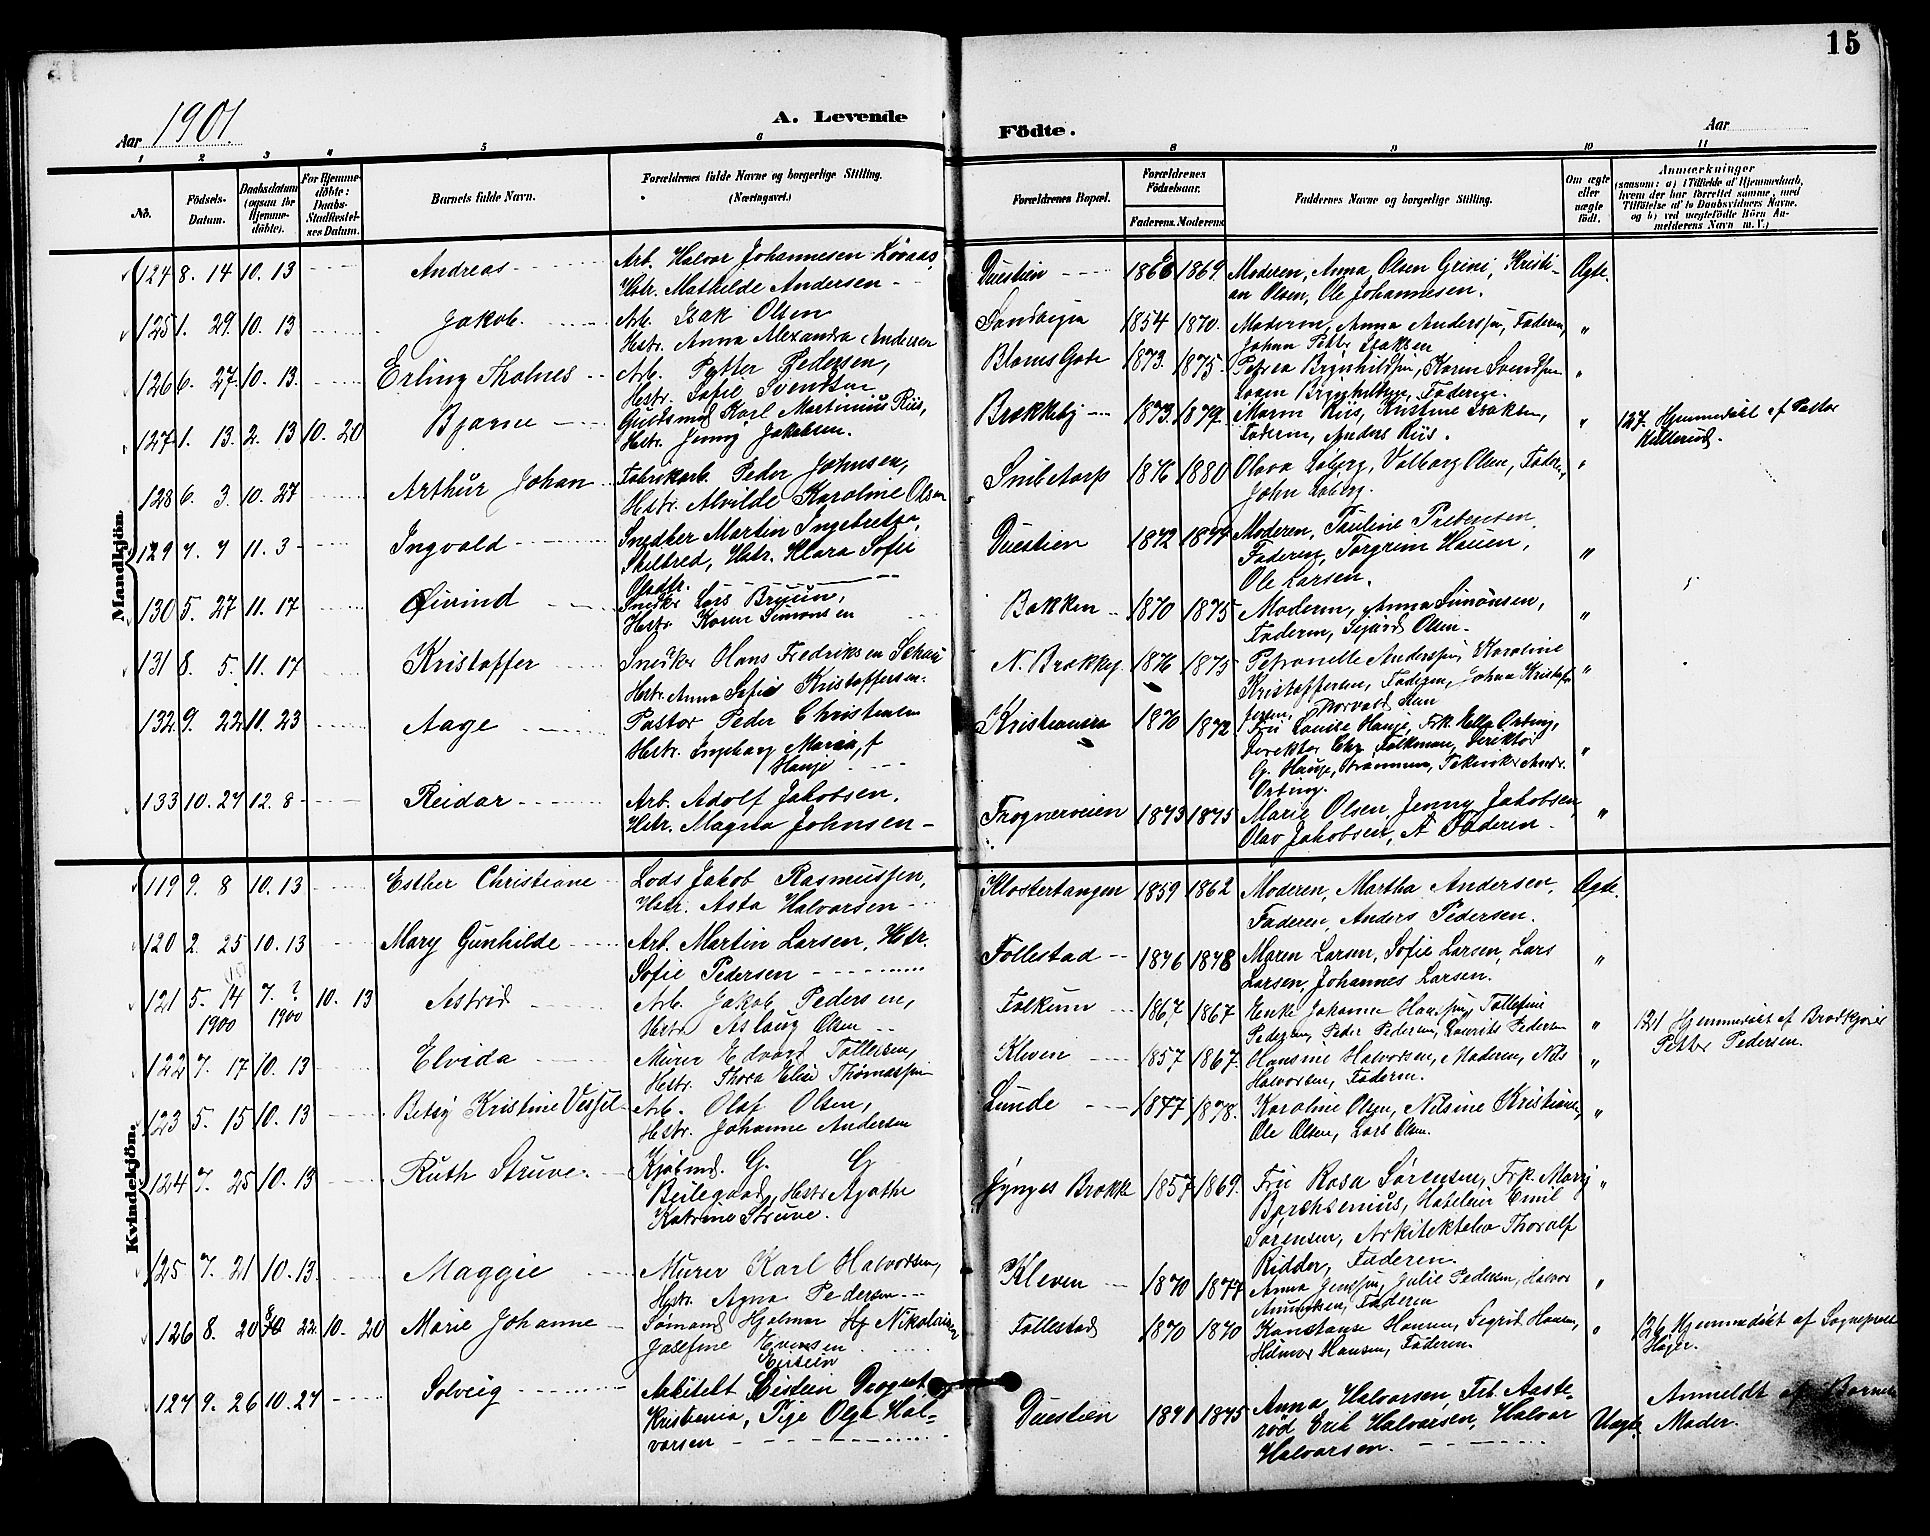 15
Aar 1901.
A. Levende
Födte.
Aar
1 2 3 4 5 6 8 9 10 11
No.
Födsels-Datum.
Daabsdatum (ogsaa for Hjemme-döbte).
For Hjemme-döbte: Daabs-Stadfæstel-ses Datum.
Barnets fulde Navn.
Forældrenes fulde Navne og borgerlige Stilling. (Næringsvei.)
Forældrenes Bopæl.
Forældrenes Födselsaar.
Faderens. Moderens.
Faddernes Navne og borgerlige Stilling.
Om ægte eller uægte födt.
Anmærkninger
(saasom: a) i Tilfælde af Hjemmedaab, hvem der har forrettet samme, med Tilföielse af to Daabsvidners Navne, og b) ved uægtefödte Börn An-melderens Navn m. V.)
Mandkjön.
124 8. 14 10. 13 Andreas Arb. Halvor Johannesen
Hstr. Mathilde Andersen
Duestien 1869. Moderen, Anna Olsen Grini, Kristi-
an Olsen, Ole Johannesen. Ægte.
125 1. 29. 10. 13 Jakob. Arb. Isak Olsen
Hstr. Anna Alexandra Andersen
1854 1870. Moderen, Anna Anderssen, Faderen,
Johan Petter Isaksen "
126 6. 27. 10. 13. Erling Skolnes Arb. Petter Pedersen,
Hstr. Sofie Svendsen
Blooms Gade 1873. 1875. Petrea Karen Svendsen
Faderen. "
127 1. 13. 2. 13 10. 20 Bjarne Karl Martinius Riis,
Hstr. Jenny Jakobsen.
Brækkeby 1873. 1879. Maren Riis, Kristine Isaksen,
Faderen, Anders Riis. "
127. Hjemmedöbt af Pastor
128 6. 3. 10. 27 Arthur Johan Fabrikarb. Peder Johnsen,
Hstr. Alvilde Karoline Olsen
Snibetorp 1876 1880 Olava Loberg, Valborg Olsen, Faderen,
John Loberg. "
129 7. 7 11. 3 Ingvald Snedker Martin Ingebretsen
Hstr. Klara Sofie
Duestien 1872 Moderen, Pauline Prebensen
Faderen, Torgrim Hauen,
Ole Larsen. "
130 5. 27 11. 17 Øivind Snedkr Lars Bruun,
Hstr. Karen Simonsen
Bakken 1870 1875 Moderen, Anna Simonsen,
Faderen, Sigurd Olsen. "
131 8. 5. 11. 17 Kristoffer Snedkr Hans Fredriksen
Hstr. Anna Sofie Kristoffersen.
N. Brækkeg. 1876 1875 Petronelle Anderssen, Karoline
Kristoffersen, Faderen, Johan Kristof-
fersen, Thorvald "
132 9. 22 11. 23 Aage Pastor Peder Christensen
Hstr. Ingeborg Maria f
Hauge
Kristiania 1870 1872 Fru Louise Hauge, Frk. Ella Orbing,
Direktör Chr. Folkman, Direktör
G. Hauge, Strömmen, Tekniker Andr.
Orbing. "
133 10. 27 12. 8 Reidar Arb. Adolf Jakobsen,
Hstr. Magna Johnsen
Frognerveien 1873 1875 Marie Olsen, Jenny Jakobsen,
Olav Jakobsen, Faderen "
Kvindekjön.
119 9. 8 10. 13 Esther Christiane Lods Jakob Rasmussen,
Hstr. Asta Halvorsen
Klostertangen 1859 1862 Moderen, Martha Andersen,
Faderen, Anders Pedersen. Ægte.
120 2. 25 10. 13 Mary Gunhilde Arb. Martin Larsen, Hstr.
Sofie Pedersen
Follestad 1876 1878 Maren Larsen, Sofie Larsen, Lars
Larsen, Johannes Larsen. "
121 5. 14 1900 7. ? 1900 10. 13 Astrid Arb. Jakob Pedersen,
Hstr. Aslaug Olsen
Falkum 1867 1867 Enke Johanne Hanssen, Tollefine
Pedersen, Peder Pedersen, Laurits Pedersen "
121 Hjemmedöbt af
Petter Pedersen.
122 7. 17 10. 13 Elvida Murer Edvart Tollefsen,
Hstr. Thora Elise Thomassen
Kleven 1857 1867. Hansine Halvorsen, Moderen, Nils
Halvorsen, Faderen. "
123 5. 15 10. 13 Betsy Kristine Arb. Olaf Olsen,
Hstr. Johanne Andersen
Lunde 1877 1878. Karoline Olsen, Nilsine Kristiansen,
Ole Olsen, Lars Olsen. "
124 7. 25 10. 13 Ruth Struve. Kjöbmd. G. G
Hstr Agathe
Katrine Struve.
Brække 1857 1869. Fru Rosa Sørensen, Frk. Mary
Borchsenius, Hotelier Emil
Sørensen, Arkitektelev Thoralf
Ridder, Faderen. "
125 7. 21 10. 13 Maggie Murer Karl Halvorsen,
Hstr. Agna Pedersen
Kleven 1870 1877 Anna Jenssen, Julie Pedersen, Halvor
Faderen "
126 8. 20 22 10. 20 Marie Johanne Sömand Hjalmar Hj. Nikolaisen
Josefine Evensen
Follestad 1870 1870 Konstanse Hansen, Sigrid Hansen,
Hilmar Hansen, Faderen. "
126 Hjemmedöbt af Sogneprest
127 9. 26 10. 27 Solveig Eistein
Arkitekt
Kristiania, Pige Olga Hal-
vorsen
Duestien 1871 1875 Anna Halvorsen, Frk. Aaste-
röd Erik Halvorsen, Halvor
Halvorsen. Uægte
Anmeldt af Barnets
Moder.